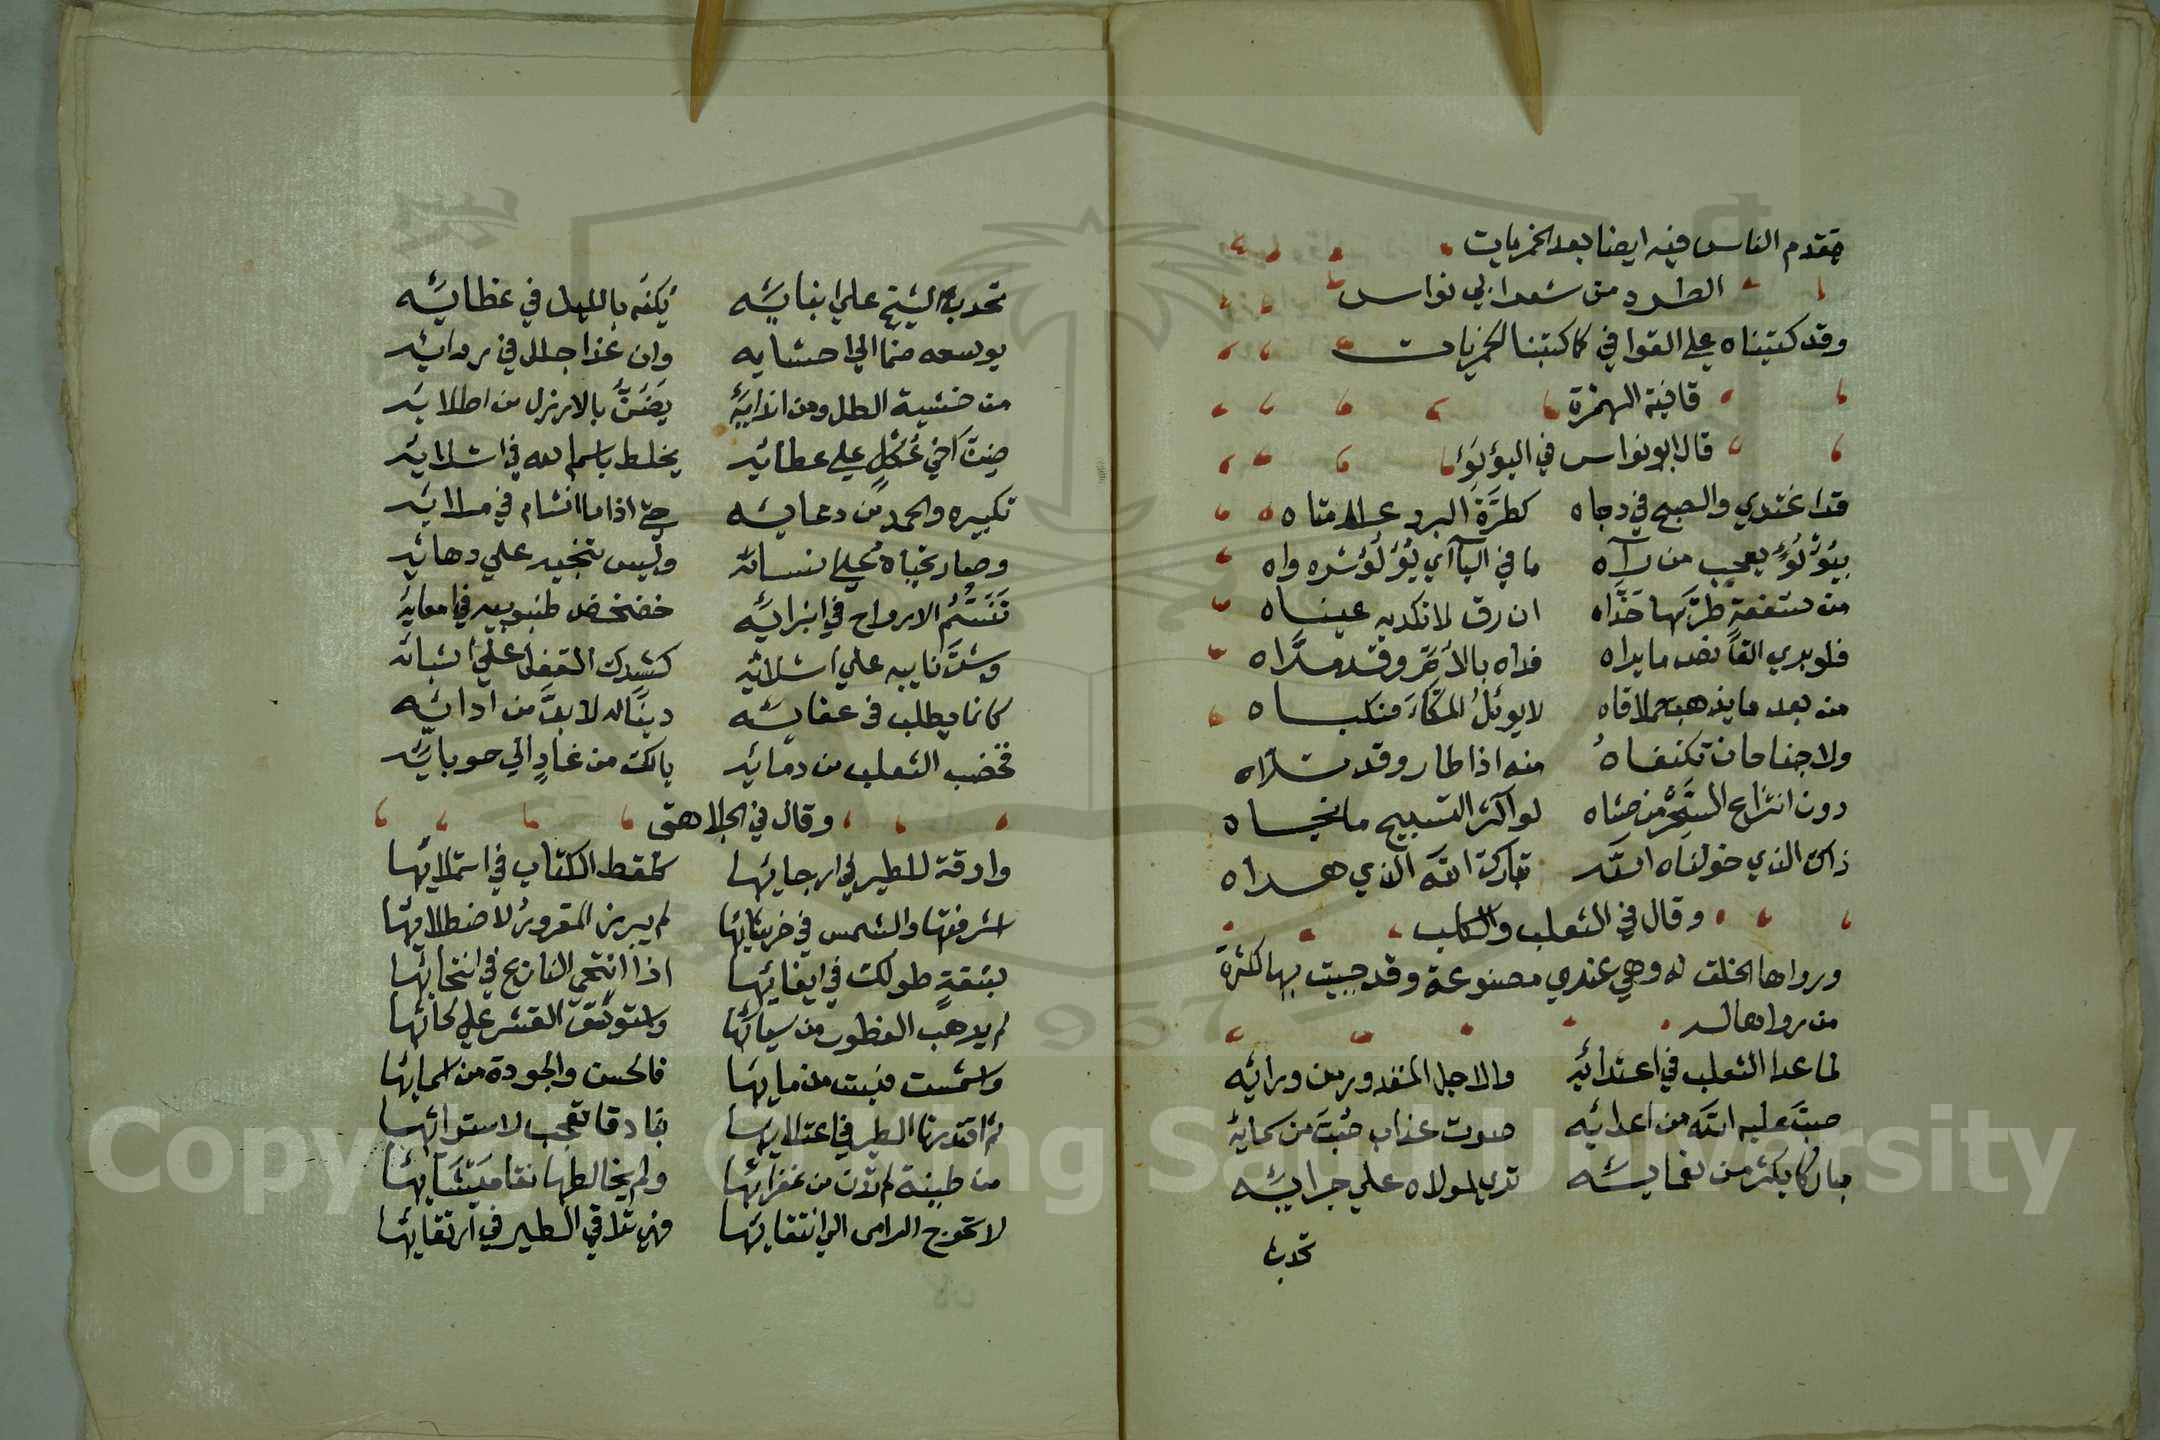 متقدم الناس فيه ايضا بعد الخمريات
الطرد من شعر ابي نواس
وقد كتبناه علي القوافي كما كتبنا الخمريات
قافية الهمزة
قال ابو نواس في اليؤيؤ
قد اغتدي والصبح في دجاه كطرة البرد علا متناه
بيؤيؤ يعجب من رآه ما في اليآئي يؤيؤ شرواه
من سفعة طرتها خداه ان رق لا تكذبه عيناه
فلو يري القانص ما يراه فداه بالام وقد فداه
من بعد ما يذهب حملاقاه لا يوئل المكاء منكباه
ولا جناحان تكنفاه منه اذا طار وقد تلاه
دون انتزاع السحر من حشاه لو اكثر التسبيح ما نجاه
ذاك الذي خولناه الله تبارك الله الذي هداه
وقال في الثعلب والكلب
ورواها الخلق له وهي عندي مصنوعة وقد جيت بها لكثرة
من رواها له
لما غدا الثعلب في اعتدائه والاجل المقدور من ورائه
صب عليه الله من اعدائه صوت عذاب صب من سمائه
مباركا يكثر من نعمايه تري لمولاه علي جرايه
تحدب
تحدب الشيخ علي ابنايه يكنه بالليل في غطايه
يوسعه ضما الي احشايه وان غدا جلل في ردائه
من خشية الطل ومن اندايه يضن بالارذل من اطلايه
ضن اخي عكل علي عطائه يخلط باسم الله في اشلايه
تكبيره والحمد من دعايه حتي اذا ما انشام في ملايه
وصار تحياه علي نسائه وليس تنجيه علي دهائه
تنسم الارواح في انبرايه خضخض طنبوبيه في امعايه
وشد نابيه علي اشلائه كشدك القفل علي اشبائه
كانما يطلب في عفايه دينا له لا بد من ادائه
فخضب الثعلب من دمائه يا لك من غاد الي حوبايه
وقال في الجلاهق
وادقة للطير في ارجايها كلقط الكتاب في استملايها
اشرفتها والشمس في خرشايها لم يبرز المقرور لاصطلايها
بشقة طولك في ايفايها اذا انتحي النازع في انتحائها
لم يرهب الفطور من سيسائها واستوثق القشر علي لحائها
وشمست فيبست من مايها فالحسن والجودة من اسمايها
ثم ابتدرنا الطير في اعتلايها بنادقا تعجب لاستوائها
من طينة لم تدن من غضرائها ولم يخالطها نقا ميثايها
لا تحوج الرامي الي انتقايها فهي تلاقي الطير في ارتقايها